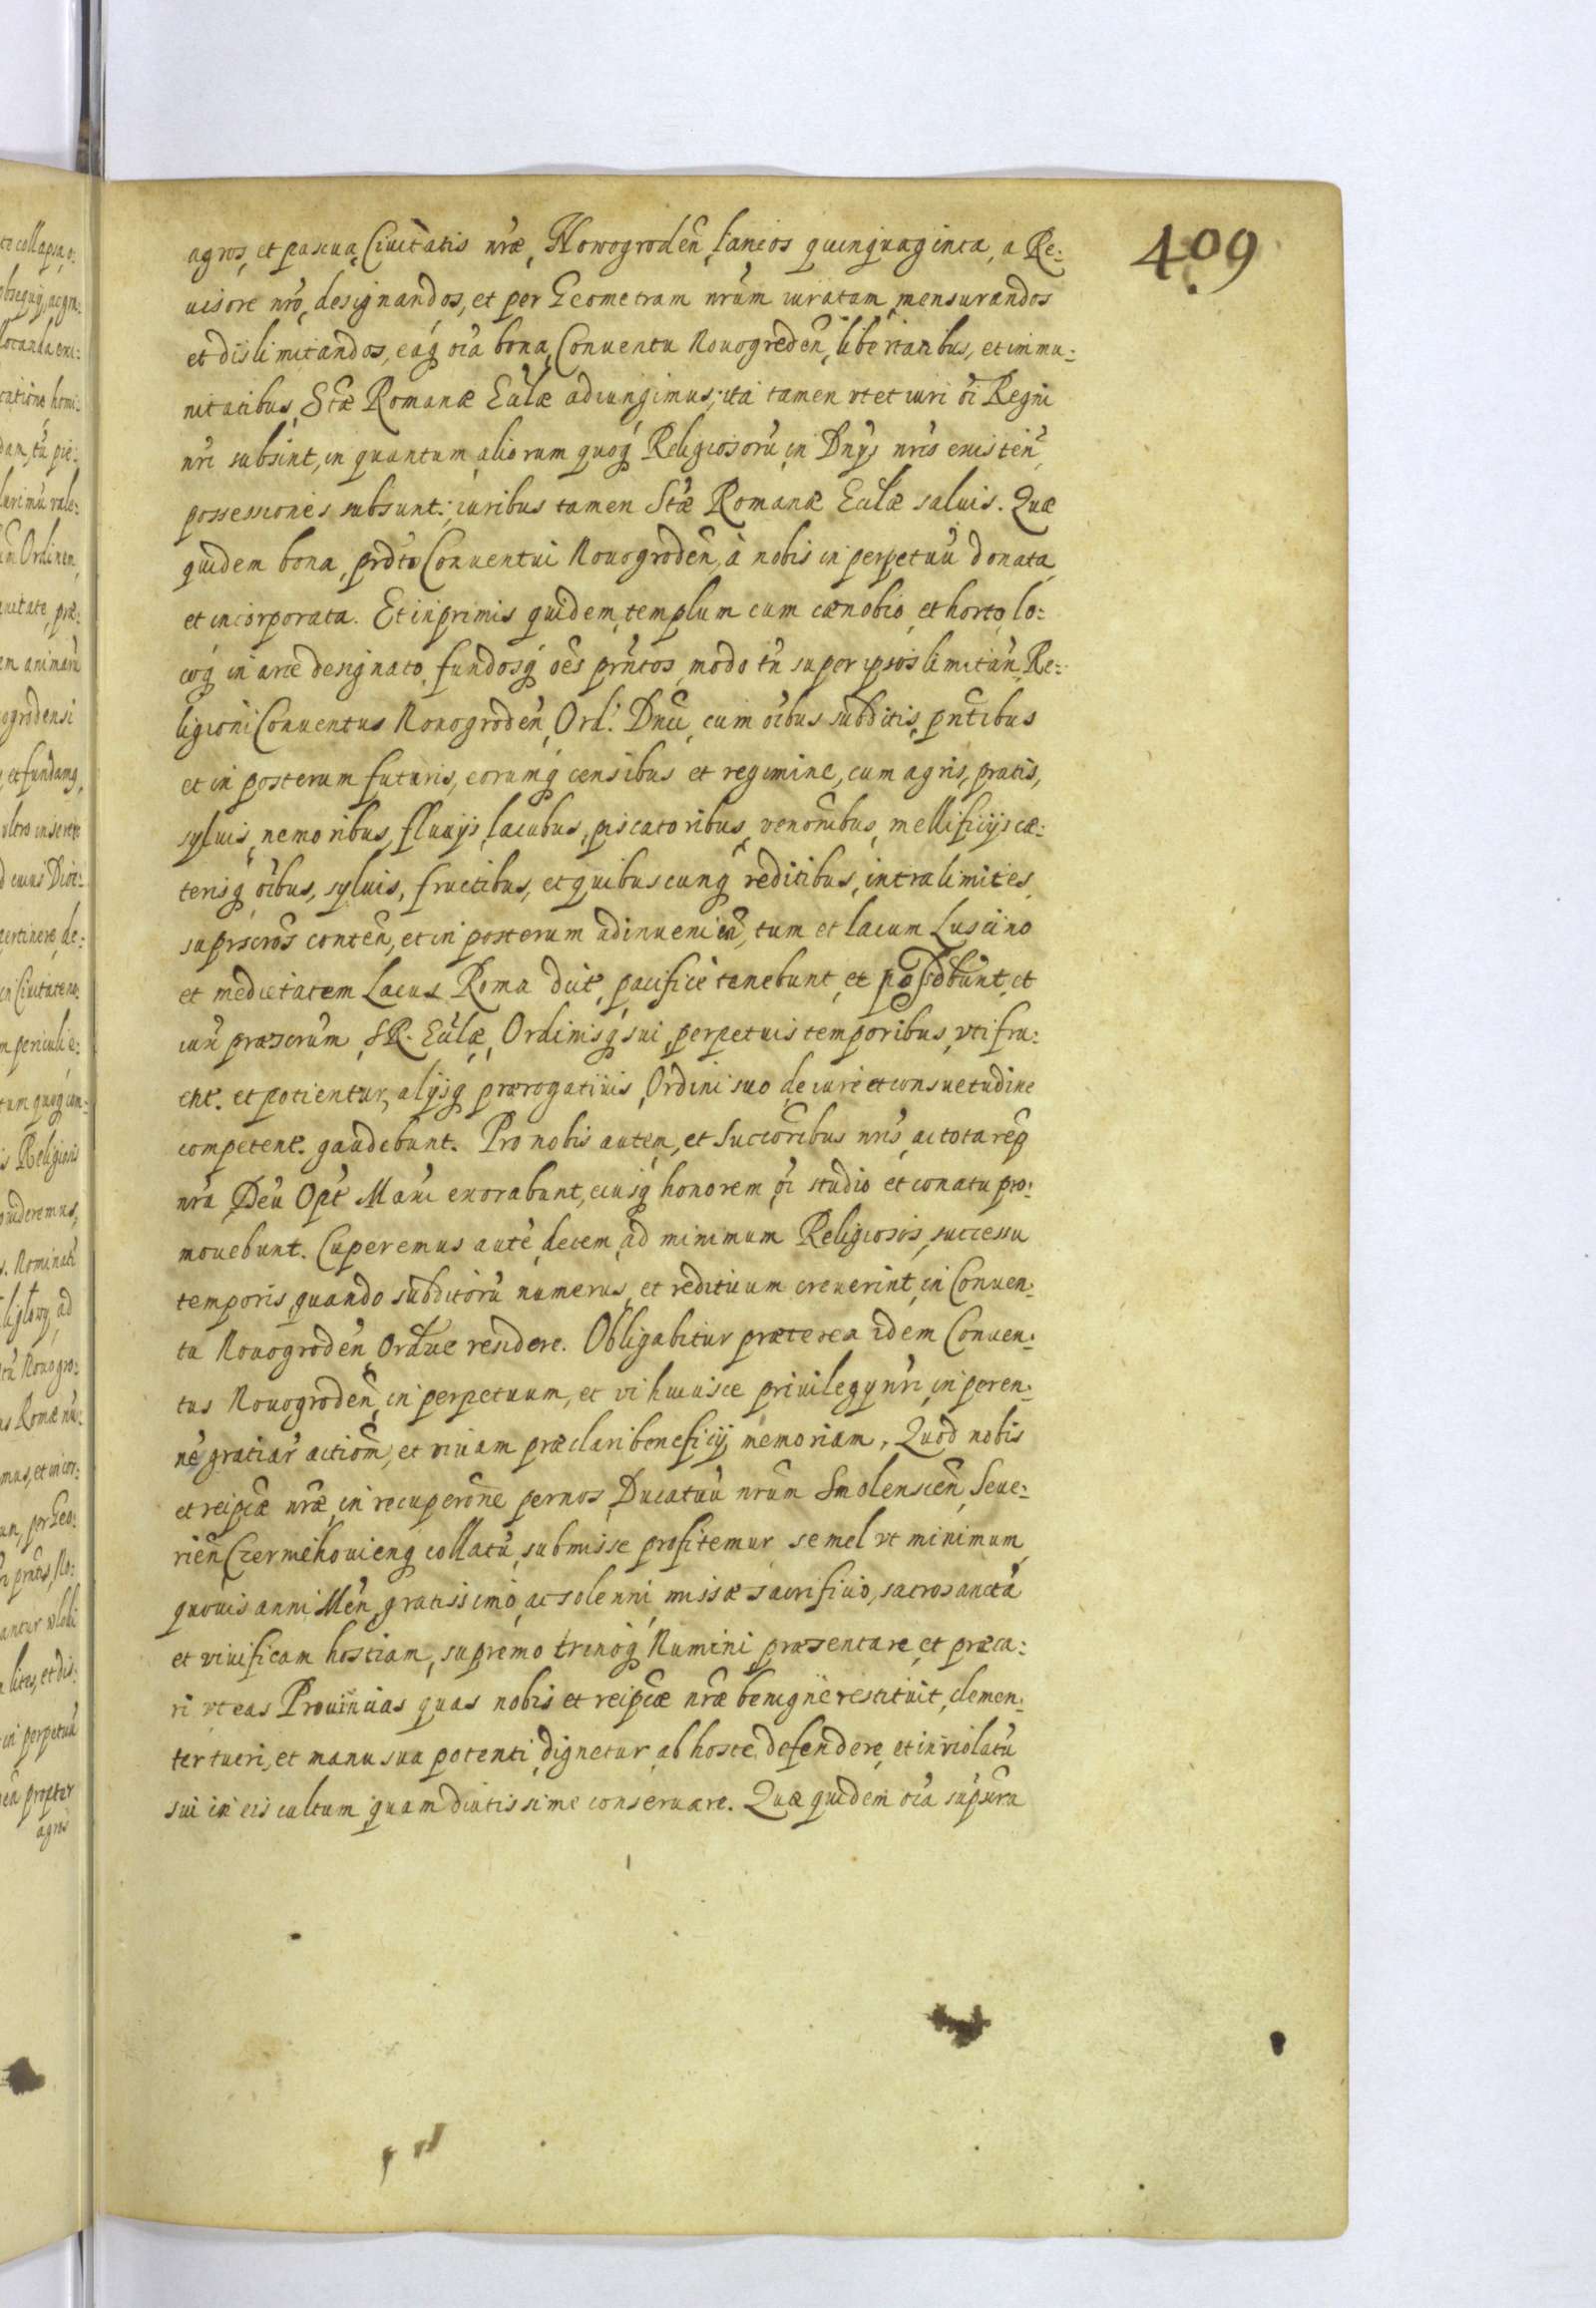 409
agros, et pascua Ciuitatis nr̃æ, Nowogroden̄, laneos quinquaginta, a Re:
uisore nr̃o, designandos, et per Geometram nr̃um iuratum mensurandos
et dislimitandos, eaq́ oĩa bona, Conuentu Nouogreden̄, libertatibus, et immu:
nitatibus, Stæ Romanæ Ecc̃læ adiungimus; ita tamen vt et iuri õi Regni
nr̃i subsint, in quantum, aliorum quoq́ Religiosorũ in Dnỹs nr̃is existen̄,
possessiones subsunt: iuribus tamen Stæ Romanæ Ecc̃læ saluis. Quæ
quidem bona, prd̃to Conuentui Nouogroden̄, à nobis in perpetuũ donata
et incorporata. Et inprimis quidem, templum cum cænobio, et horto, lo:
coq́ in arce designato, fundosq́ oẽs pr̃ntos, modo tñ super ipsos limitañ, Re:
ligioni Conuentus Nouogroden̄, Ord: Dn̄ci, cum oĩbus subditis, pñtibus
et in posterum futuris, eorumq́ censibus et regimine, cum agris, pratis,
syluis, nemoribus, fluuijs, lacubus, piscatoribus, venõnibus, mellificijs cæ:
terisq́ oĩbus, syluis, fructibus, et quibuscunq́ reditibus, intra limites
suprscrõs conten̄, et in posterum adinuenien̄, tum et lacum Luscino
et medietatem Lacus Roma dict̃, pacificè tenebunt, et possdebunt, et
iurĩ præscrum, S.R. Ecc̃læ, Ordinisq́ sui, perpetuis temporibus, vti fru:
ent. et potientur, alijsq́ prærogatiuis, Ordini suo de iure et consuetudine
competent. gaudebunt. Pro nobis autem, et Succõribus nr̃is, ac tota req̃
nr̃a Deũ Opt̃ Max̃ exorabunt, eiusq́ honorem, õi studio et conatu pro:
mouebunt. Cuperemus autẽ, decem, ad minimum Religiosos, successu
temporis, quando subditorũ numerus, et redituum creuerint, in Conuen:
tu Nouogroden̄ residere. Obligabitur præterea idem Conuen:
tus Nouogroden̄, in perpetuum, et vi huiusce priuilegy nr̃i, in peren:
nẽ gratiar̃ actiom̃, et viuam præclari beneficij, memoriam. Quod nobis
et reip̃cæ nr̃æ in recuperõne per nos, Ducatuũ nr̃um Smolenscen̄, Seue:
rien̄ Czerniehouienq́ collatũ, submisse profitemur semel vt minimum
quouis anni Men̄, gratissimo, ac solenni, missæ sacrificio, sacrosanctã
et viuificam hostiam, supremo trinoq́ Numini, præsentare, et præca:
ri vt eas Prouincias quas nobis et reip̃cæ nr̃æ benignè restituit, clemen:
ter tueri, et manu sua potenti, dignetur, ab hoste, defendere, et inviolatũ
sui in eis cultum quam diutissime conseruare. Quæ quidem oĩa supr̃a